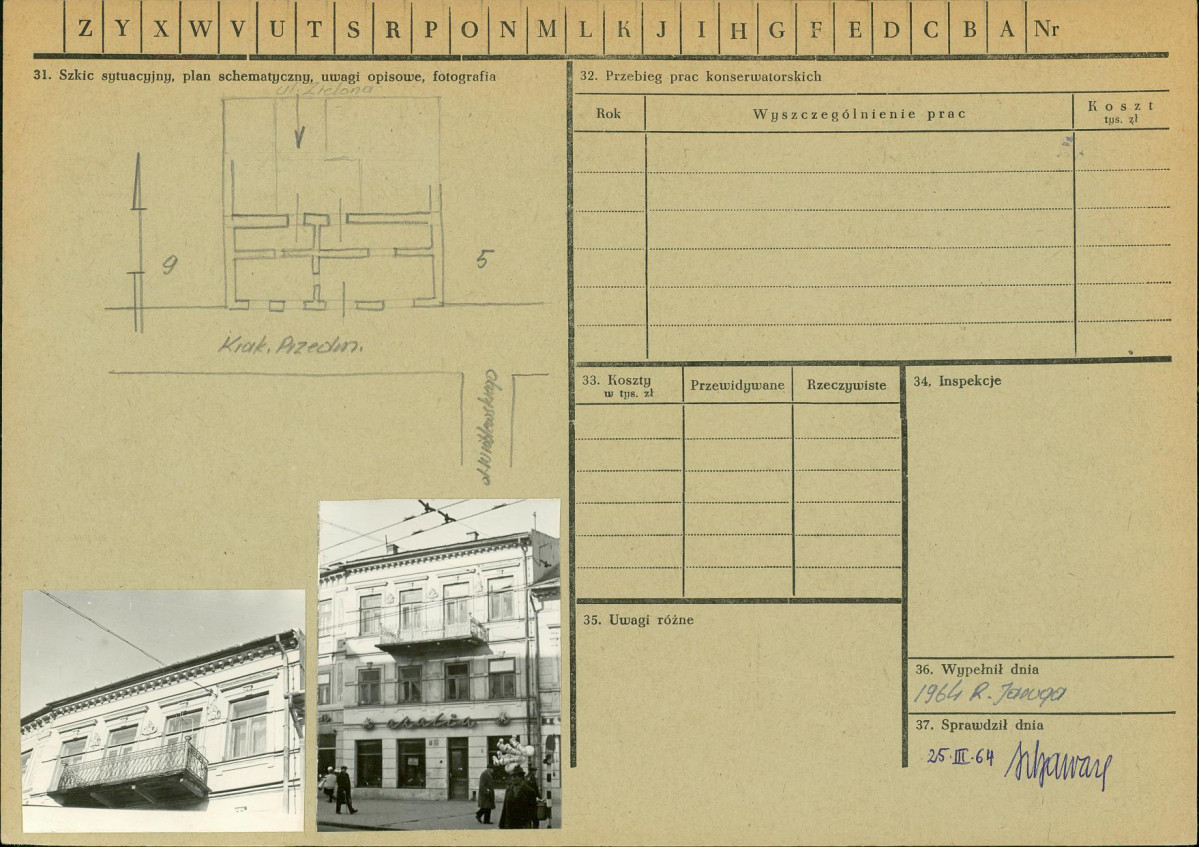 Z Y X W V U T S R P O N M L K J I H G F E D C B A Nr
31. Szkic sytuacyjny, plan schematyczny, uwagi opisowe, fotografia
ul. Zielona
9
5
Krak. Przedm.
32. Przebieg prac konserwatorskich
Rok
Wyszczególnienie prac
Koszt
tys. zł
33. Koszty
w tys. zł
Przewidywane
Rzeczywiste
34. Inspekcje
35. Uwagi różne
36. Wypełnił dnia
1964 R. Januga
37. Sprawdził dnia
25·III·64